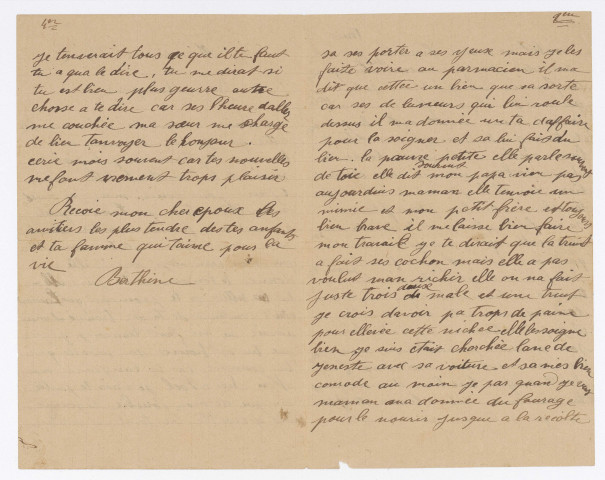 4er
je tenverait tous ce que il te faut
tu a qua le dire, tu me dirat si
tu est bien plus guerre autre
chosse a te dire car ses l'heure daller
me couchée ma sœur me charge
de bien tanvoyer le bonjour.
ecrie mois souvent car tes nouvelles
me font vrement trops plaisir
Recoie mon cher epoux les
amitiers les plus tendre des tes enfants
et ta famme qui t'aime pour la
vie
Berthine
sa ses porter a ses yeux mais je les
faite voire au parmacien il ma
dit que cettée un bien que sa sorte
car ses de lumeurs qui lui roule
dessus il ma donnée un ta daffaire
pour la soigner et sa lui fais du
bien. la pauvre petite elle parle souvent
de toie elle dit mon papa vien pas
aujourdius maman elle tenvoie un
mimie et mon petit frère est toujours
bien brave il me laisse bien faire
mon travail je te dirait que la truit
a fait ses cochon mais elle a pas
voulut man richir elle on na fait
juste trois deux male et une truit
je crois davoir pa trops de paine
pour ellevée cette nichée elle les soigne
bien je suis etait cherchée lane de
jeneste avec sa voiture et sa mes bien
comode au moin je par quand je veux
maman ma donnée du fourage
pour le nourir jusque a la récolte